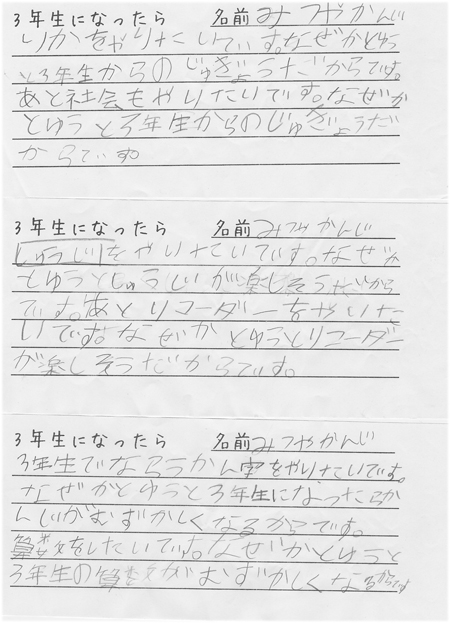 3年生になったら 名前みつやかんじ
りかをやりたいです。なぜかとゆう
と3年生からのじゅぎょうだからです。
あと社会もやりたいです。なぜか
とゆうと3年生からのじゅぎょうだ
からです。
3年生になったら 名前みつやかんじ
しゅうじをやりたいです。なぜか
とゆうとしゅうじが楽しそうだから
です。あとリコーダーをやりた
いです。なぜかとゆうとリコーダー
が楽しそうだからです。
3年生になったら 名前みつやかんじ
3年生でならうかん字をやりたいです。
なぜかとゆうと3年生になったらか
んじがむずかしくなるからです。
算数をしたいです。なぜかとゆうと
3年生の算数がむずかしくなるからです